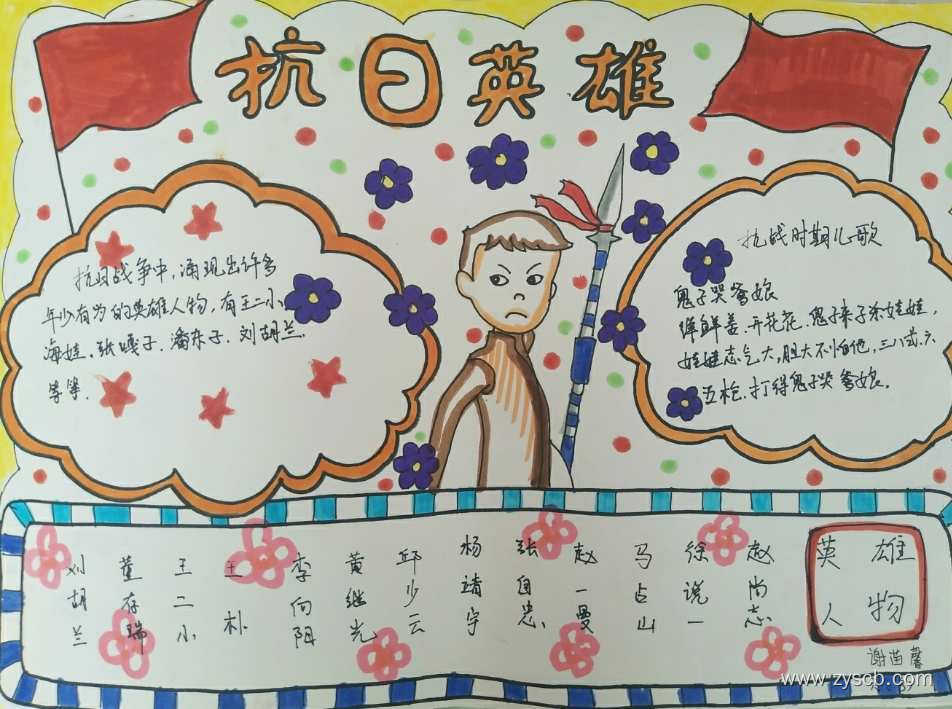 抗日英雄
抗日战争中，涌现出许多
年少有为的英雄人物，有王二小
海娃、张嘎子、潘冬子、刘胡兰
等等.
抗战时期儿歌
鬼子哭爹娘
开花花，鬼子来了杀娃娃，
娃娃志气大，胆大不怕他，三八式、六
五枪、打得鬼子哭爹娘。
英雄
人物
赵尚志
徐说一
马占山
赵一曼
张自忠
杨靖宇
邱少云
黄继光
李向阳
王朴
王二小
董存瑞
刘胡兰
谢苗馨
www.zyscb.com